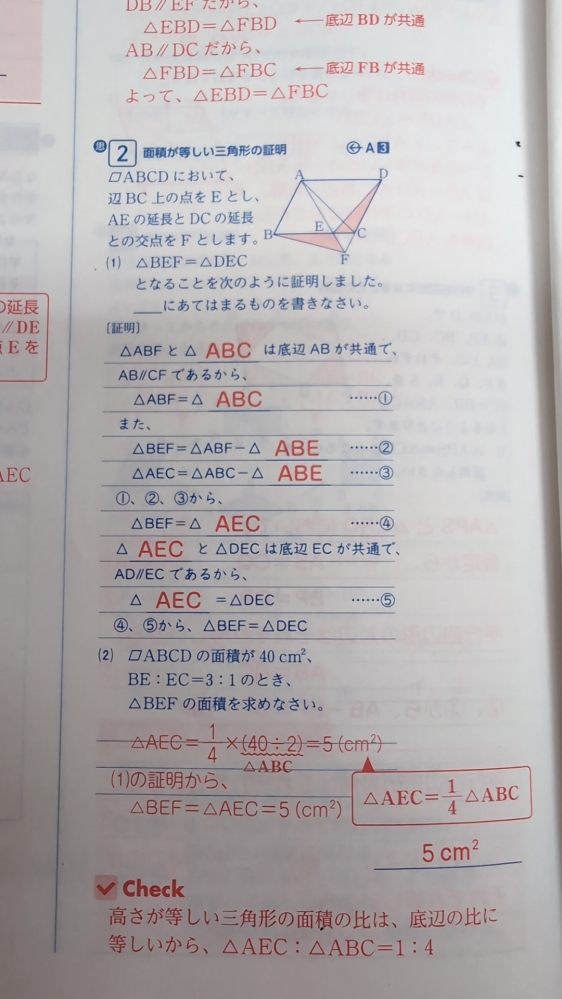 DB∥EF だから、
△EBD=△FBD ←底辺 BD が共通
AB∥DC だから、
△FBD=△FBC ←底辺 FB が共通
よって、△EBD=△FBC
思 2 面積が等しい三角形の証明 A3
▱ABCD において、
辺 BC 上の点を E とし、
AE の延長と DC の延長
との交点を F とします。
A D
B E C
F
(1) △BEF=△DEC
となることを次のように証明しました。
＿＿にあてはまるものを書きなさい。
〔証明〕
△ABF と △ ABC は底辺 AB が共通で、
AB∥CF であるから、
△ABF=△ ABC ……①
また、
△BEF=△ABF−△ ABE ……②
△AEC=△ABC−△ ABE ……③
①、②、③から、
△BEF=△ AEC ……④
△ AEC と △DEC は底辺 EC が共通で、
AD∥EC であるから、
△ AEC =△DEC ……⑤
④、⑤から、△BEF=△DEC
(2) ▱ABCD の面積が 40 cm²、
BE：EC=3：1 のとき、
△BEF の面積を求めなさい。
△AEC=1/4×(40÷2)=5(cm²)
△ABC
(1)の証明から、
△BEF=△AEC=5(cm²)
△AEC=1/4△ABC
5 cm²
Check
高さが等しい三角形の面積の比は、底辺の比に
等しいから、△AEC：△ABC=1：4
の延長
∥DE
E を
AEC